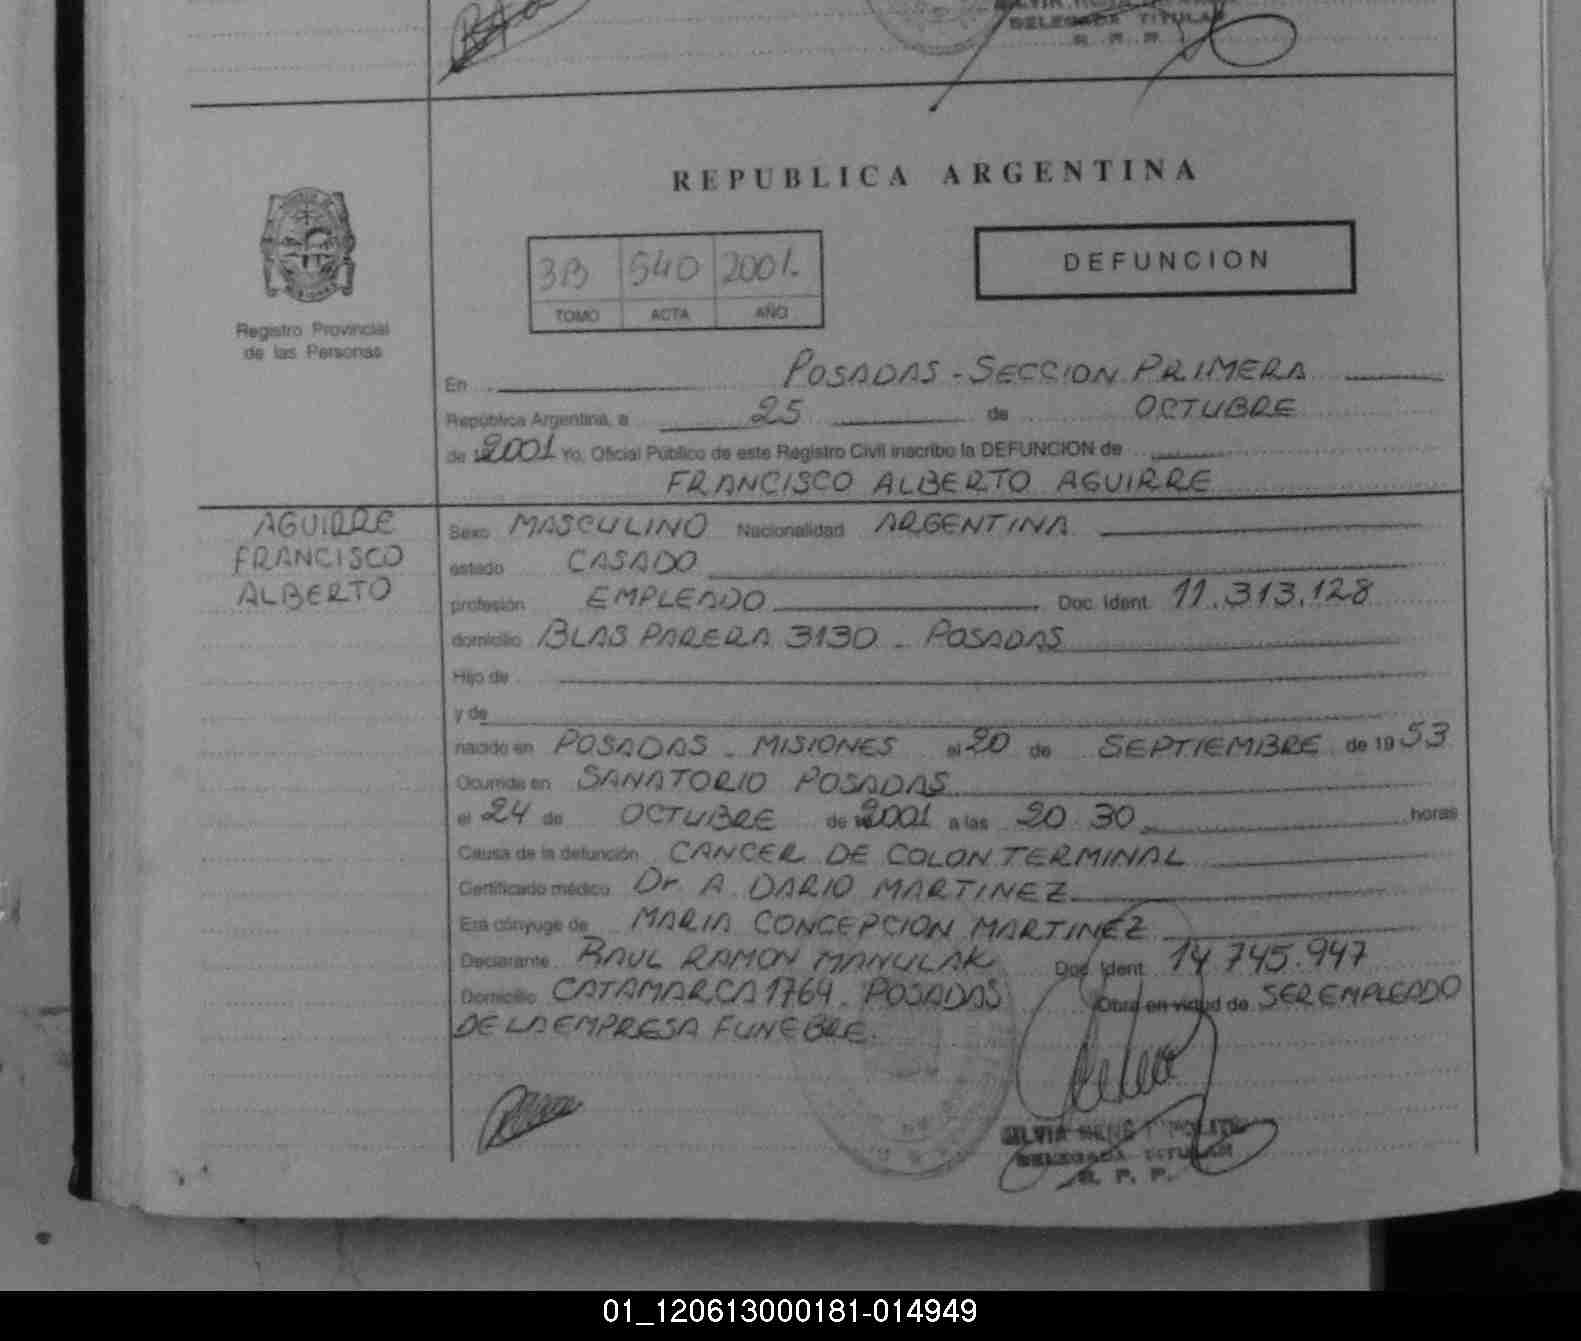 DELEGADA TITULAR
R. P. P.
REPUBLICA ARGENTINA
3B 540 2001.
TOMO ACTA AÑO
DEFUNCION
Registro Provincial
de las Personas
En POSADAS - SECCION PRIMERA
República Argentina, a 25 de OCTUBRE
de 2001 Yo, Oficial Público de este Registro Civil inscribo la DEFUNCION de
FRANCISCO ALBERTO AGUIRRE
AGUIRRE
FRANCISCO
ALBERTO
Sexo MASCULINO Nacionalidad ARGENTINA
estado CASADO
profesión EMPLEADO Doc. Ident. 11.313.128
domicilio BLAS PARERA 3130 - POSADAS
Hijo de
y de
nacido en POSADAS - MISIONES el 20 de SEPTIEMBRE de 1953
Ocurrida en SANATORIO POSADAS
el 24 de OCTUBRE de 2001 a las 20.30 horas
Causa de la defunción CANCER DE COLON TERMINAL
Certificado médico Dr. A. DARIO MARTINEZ
Era cónyuge de MARIA CONCEPCION MARTINEZ
Declarante RAUL RAMON MANULAK Doc. Ident. 14.745.947
Domicilio CATAMARCA 1764 - POSADAS Obra en virtud de SER EMPLEADO
DE LA EMPRESA FUNEBRE.
SILVIA
DELEGADA TITULAR
R. P. P.
01_120613000181-014949